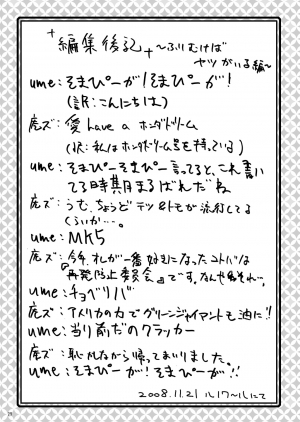 編集後記
〜ふりむけば
ヤツがいる編〜
ume:そまぴーが!そまぴーが!
(訳:こんにちは)
虎ズ:愛 have a ホンダドリーム
(訳:私はホンダドリーム号を持っている)
ume:そまぴーそまぴー言ってると、これ書い
てる時期まるばれだね
虎ズ:うむ、ちょうどテツ&トモが流行してる
くらいか…。
ume:MK5
虎ズ:今年、オレが一番好きになったコトバは
『再発防止委員会』です。なんやねそれ…。
ume:チョベリバ
虎ズ:アメリカの力でグリーンジャイアントも油に!!
ume:当り前だのクラッカー
虎ズ:恥かしながら帰ってまいりました。
ume:そまぴーが!そまぴーが!!
2008.11.21 ルノアールにて